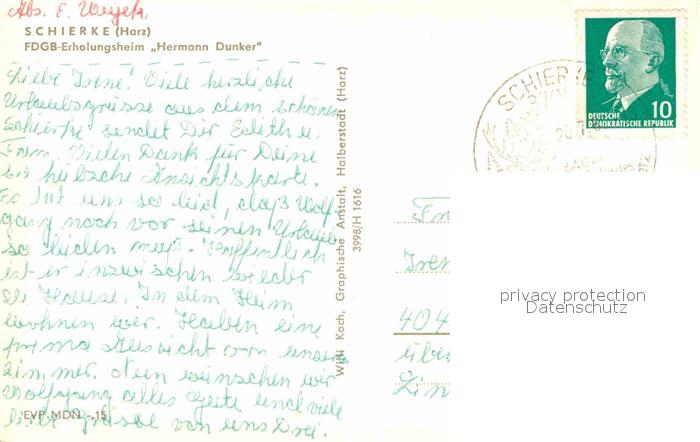 Abs. E.
SCHIERKE (Harz)
FDGB-Erholungsheim „Hermann Dunker"
Liebe Irene! Viele herzliche
Urlaubsgrüsse aus dem schönen
Schierke sendet Dir Edith u.
Fam. Vielen Dank für Deine
so hübsche Ansichtskarte.
Es tut uns so leid, daß Wolf-
gang noch vor seinen Urlaub
so leiden muß. Hoffentlich
ist er inzwischen wieder
zu Hause. In dem Heim
wohnen wir. Haben eine
prima Aussicht von unserem
Zimmer. Nun wünschen wir
Wolfgang alles Gute und viele
liebe Grüsse von uns Drei.
EVP MDN -,15
Willi Koch, Graphische Anstalt, Halberstadt (Harz)
3998/H 1616
SCHIERKE
10
DEUTSCHE
DEMOKRATISCHE REPUBLIK
Fr
Iren
404
über
Lin
privacy protection
Datenschutz